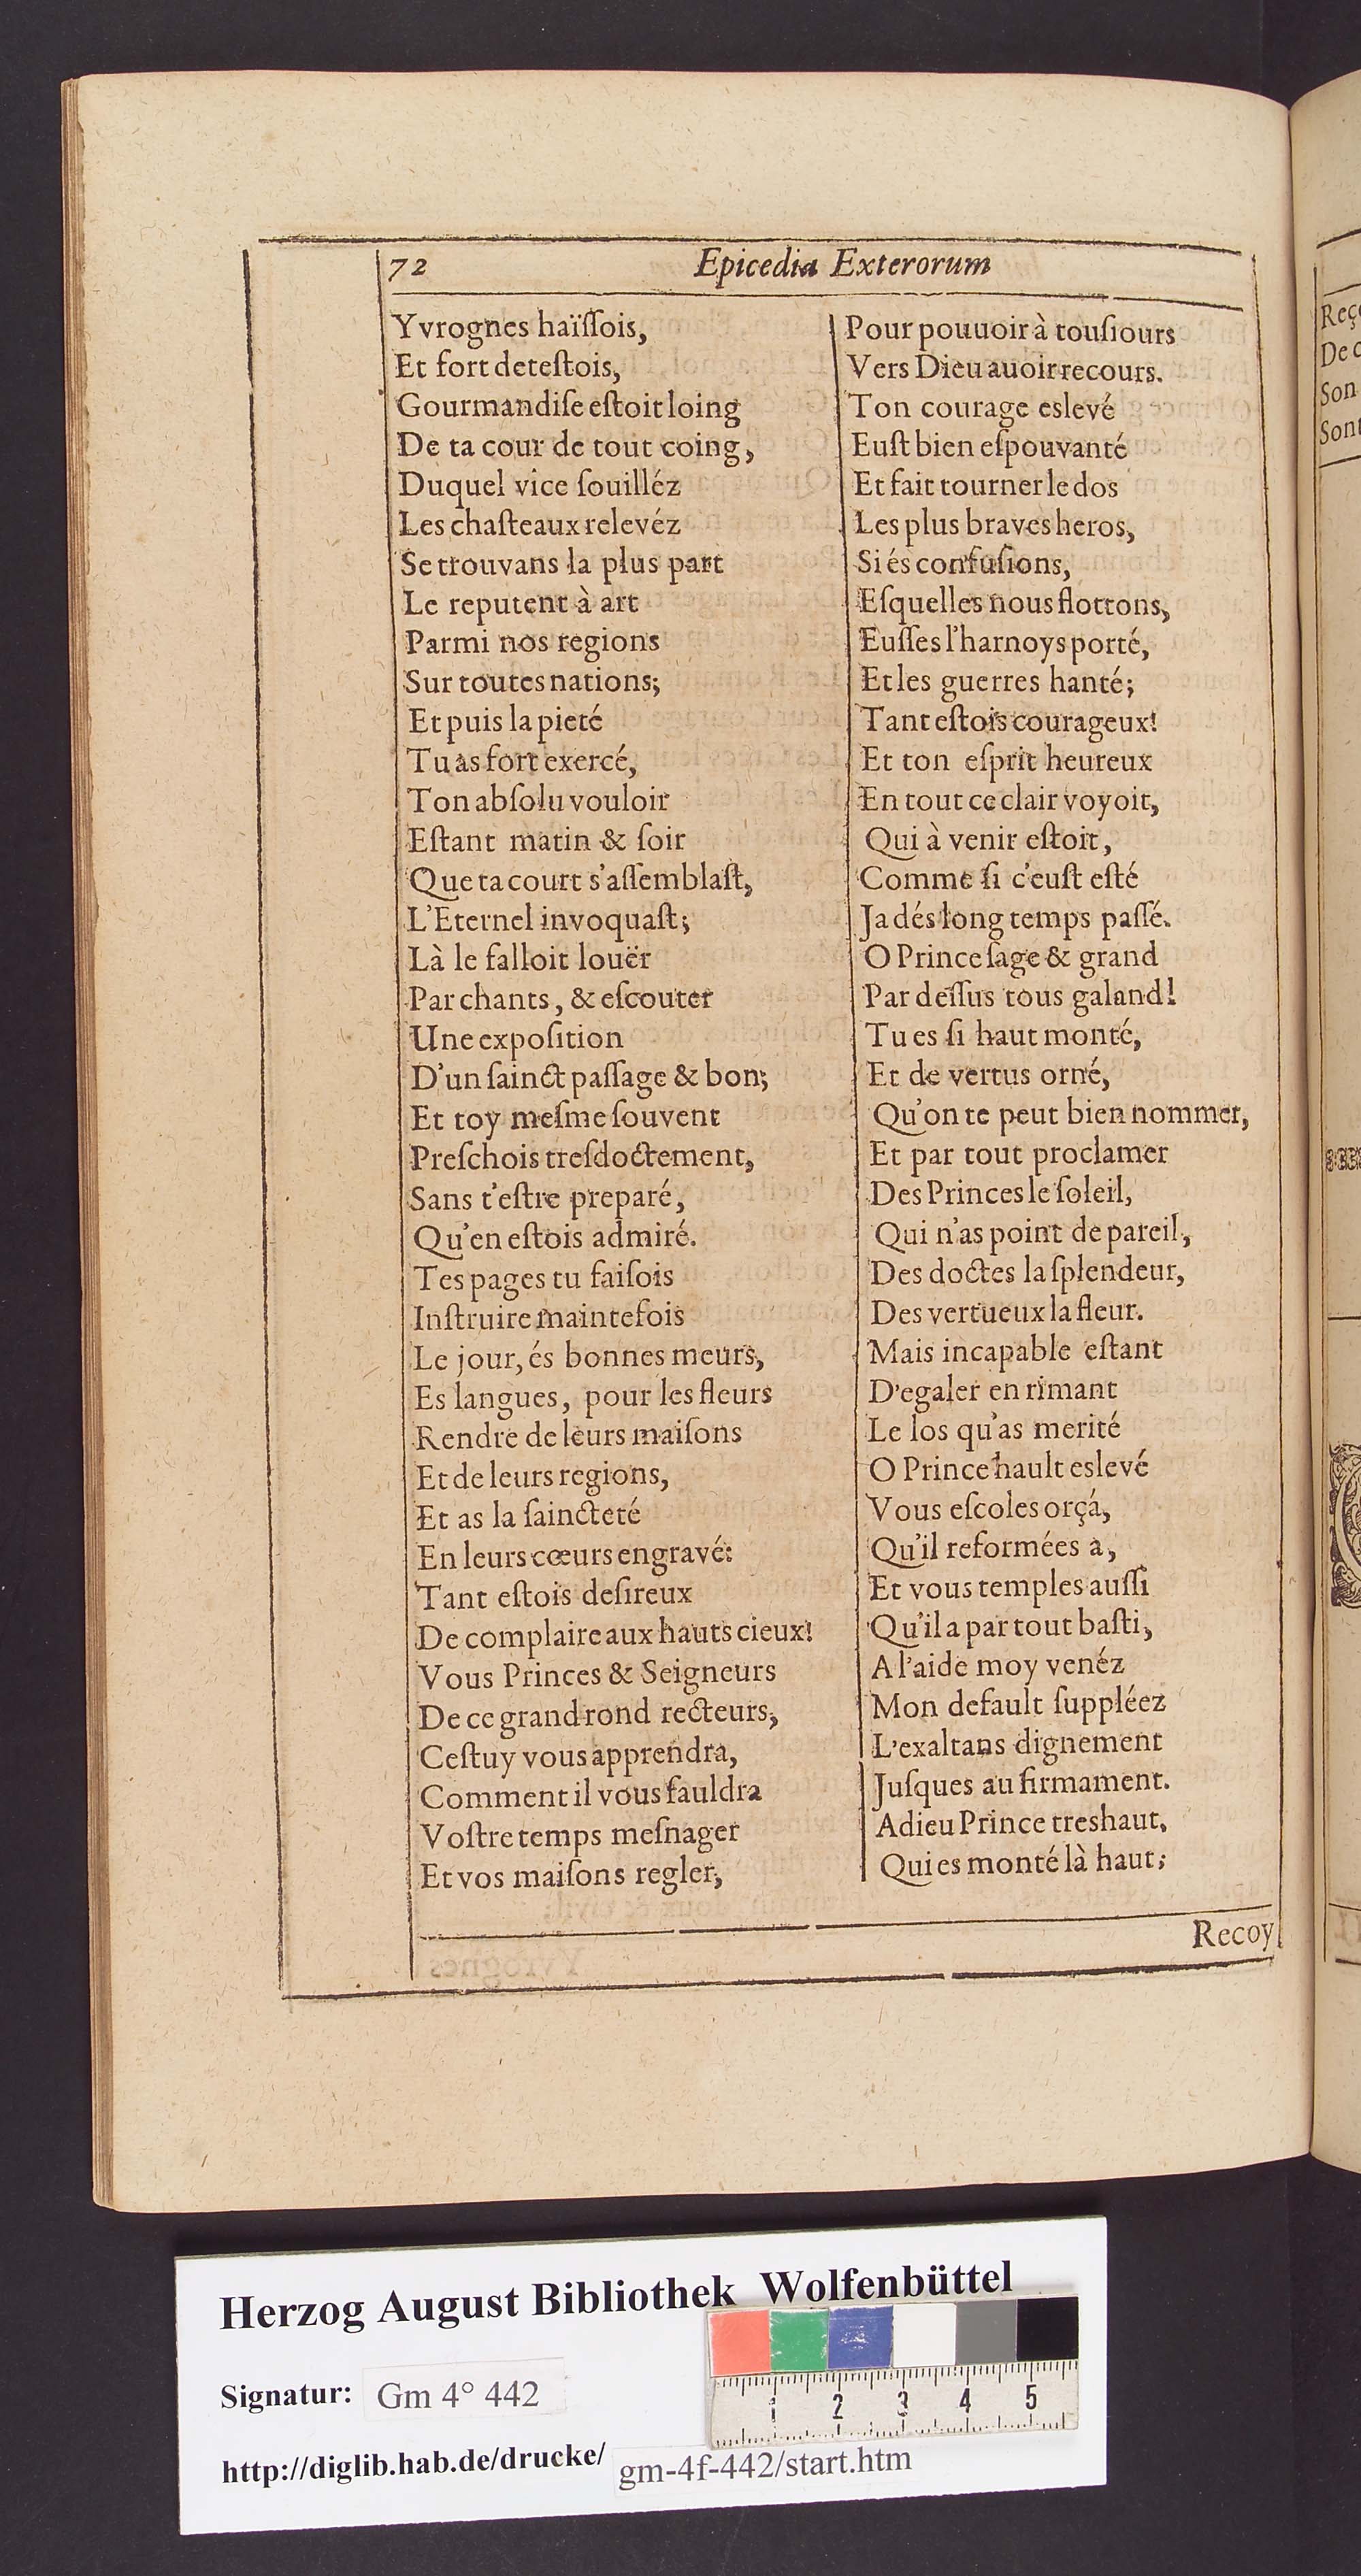 72 Epicedia Exterorum
Yvrognes haïſſois,
Et fort deteſtois,
Gourmandiſe eſtoit loing
De ta cour de tout coing,
Duquel vice ſouilléz
Les chaſteaux relevéz
Se trouvans la plus part
Le reputent à art
Parmi nos regions
Sur toutes nations;
Et puis la pieté
Tu as fort exercé,
Ton abſolu vouloir
Eſtant matin & ſoir
Que ta court s'aſſemblaſt,
L'Eternel invoquaſt;
Là le falloit louër
Par chants, & eſcouter
Une expoſition
D'un ſainct paſſage & bon;
Et toy meſme ſouvent
Preſchois treſdoctement,
Sans t'eſtre preparé,
Qu'en eſtois admiré.
Tes pages tu faiſois
Inſtruire maintefois
Le jour, és bonnes meurs,
Es langues, pour les fleurs
Rendre de leurs maiſons
Et de leurs regions,
Et as la ſaincteté
En leurs cœurs engravé:
Tant eſtois deſireux
De complaire aux hauts cieux!
Vous Princes & Seigneurs
De ce grand rond recteurs,
Ceſtuy vous apprendra,
Comment il vous fauldra
Voſtre temps meſnager
Et vos maiſons regler,
Pour pouuoir à touſiours
Vers Dieu auoir recours.
Ton courage eslevé
Euſt bien eſpouvanté
Et fait tourner le dos
Les plus braves heros,
Si és confuſions,
Eſquelles nous flottons,
Euſſes l'harnoys porté,
Et les guerres hanté;
Tant eſtois courageux!
Et ton eſprit heureux
En tout ce clair voyoit,
Qui à venir eſtoit,
Comme ſi c'euſt eſté
Ja dés long temps paſſé.
O Prince ſage & grand
Par deſſus tous galand!
Tu es ſi haut monté,
Et de vertus orné,
Qu'on te peut bien nommer,
Et par tout proclamer
Des Princes le ſoleil,
Qui n'as point de pareil,
Des doctes la ſplendeur,
Des vertueux la fleur.
Mais incapable eſtant
D'egaler en rimant
Le los qu'as merité
O Prince hault eslevé
Vous eſcoles orçá,
Qu'il reformées a,
Et vous temples auſſi
Qu'il a par tout baſti,
A l'aide moy venéz
Mon default ſuppléez
L'exaltans dignement
Juſques au firmament.
Adieu Prince treshaut,
Qui es monté là haut;
Recoy
Reç
De
Son
Sont
Herzog August Bibliothek Wolfenbüttel
Signatur: Gm 4° 442
http://diglib.hab.de/drucke/ gm-4f-442/start.htm
1 2 3 4 5